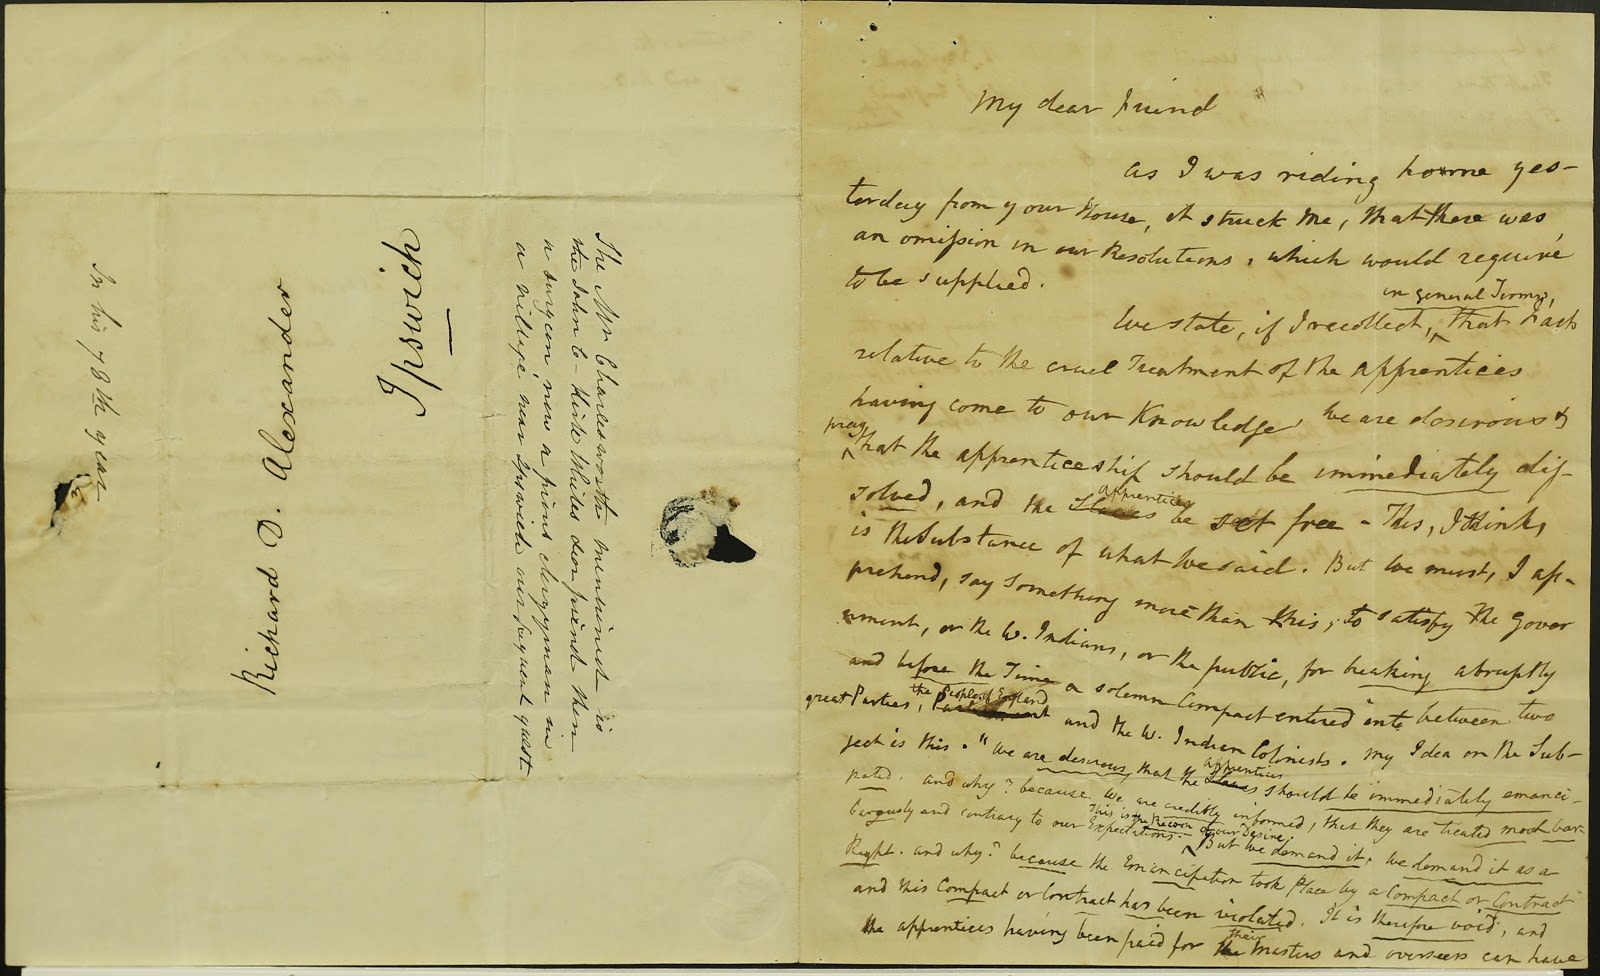 In his 78th year
Richard D. Alexander
Ipswich
The Mr Charlesworth mentioned is
the John C - Hide whiles dear friend then
a surgeon now a pious clergyman in
a village near Ipswich our frequent guest
My dear Friend
as I was riding home yes-
terday from your House, it struck me, that there was
an omission in our Resolutions, which would require
to be supplied.
in general Terms,
We state, if I recollect, that Facts
relative to the cruel Treatment of the apprentices
having come to our Knowledge, we are desirous &
pray
that the apprenticeship should be immediately dis-
apprentices
solved, and the Slaves be set free - This, I think,
is the Substance of what we said. But we must, I ap-
prehend, say something more than this, to satisfy the Gover
nment, or the W. Indians, or the public, for breaking abruptly
and before the Time a solemn Compact entered into between two
the People of England
great Parties, Parliament and the W. Indian Colonists. My Idea on the Sub-
ject is this. "We are desirous, that the Slaves should be immediately emanci-
apprentices
pated. and why? because we are credibly informed, that they are treated most bar-
This is the Reason of our Desire.
barously and contrary to our Expectations. But we demand it. We demand it as a
Right. and why? because the Emancipation took Place by a Compact or Contract
and this Compact or Contract has been violated. It is therefore void, and
their
the apprentices having been paid for the Masters and overseers can have